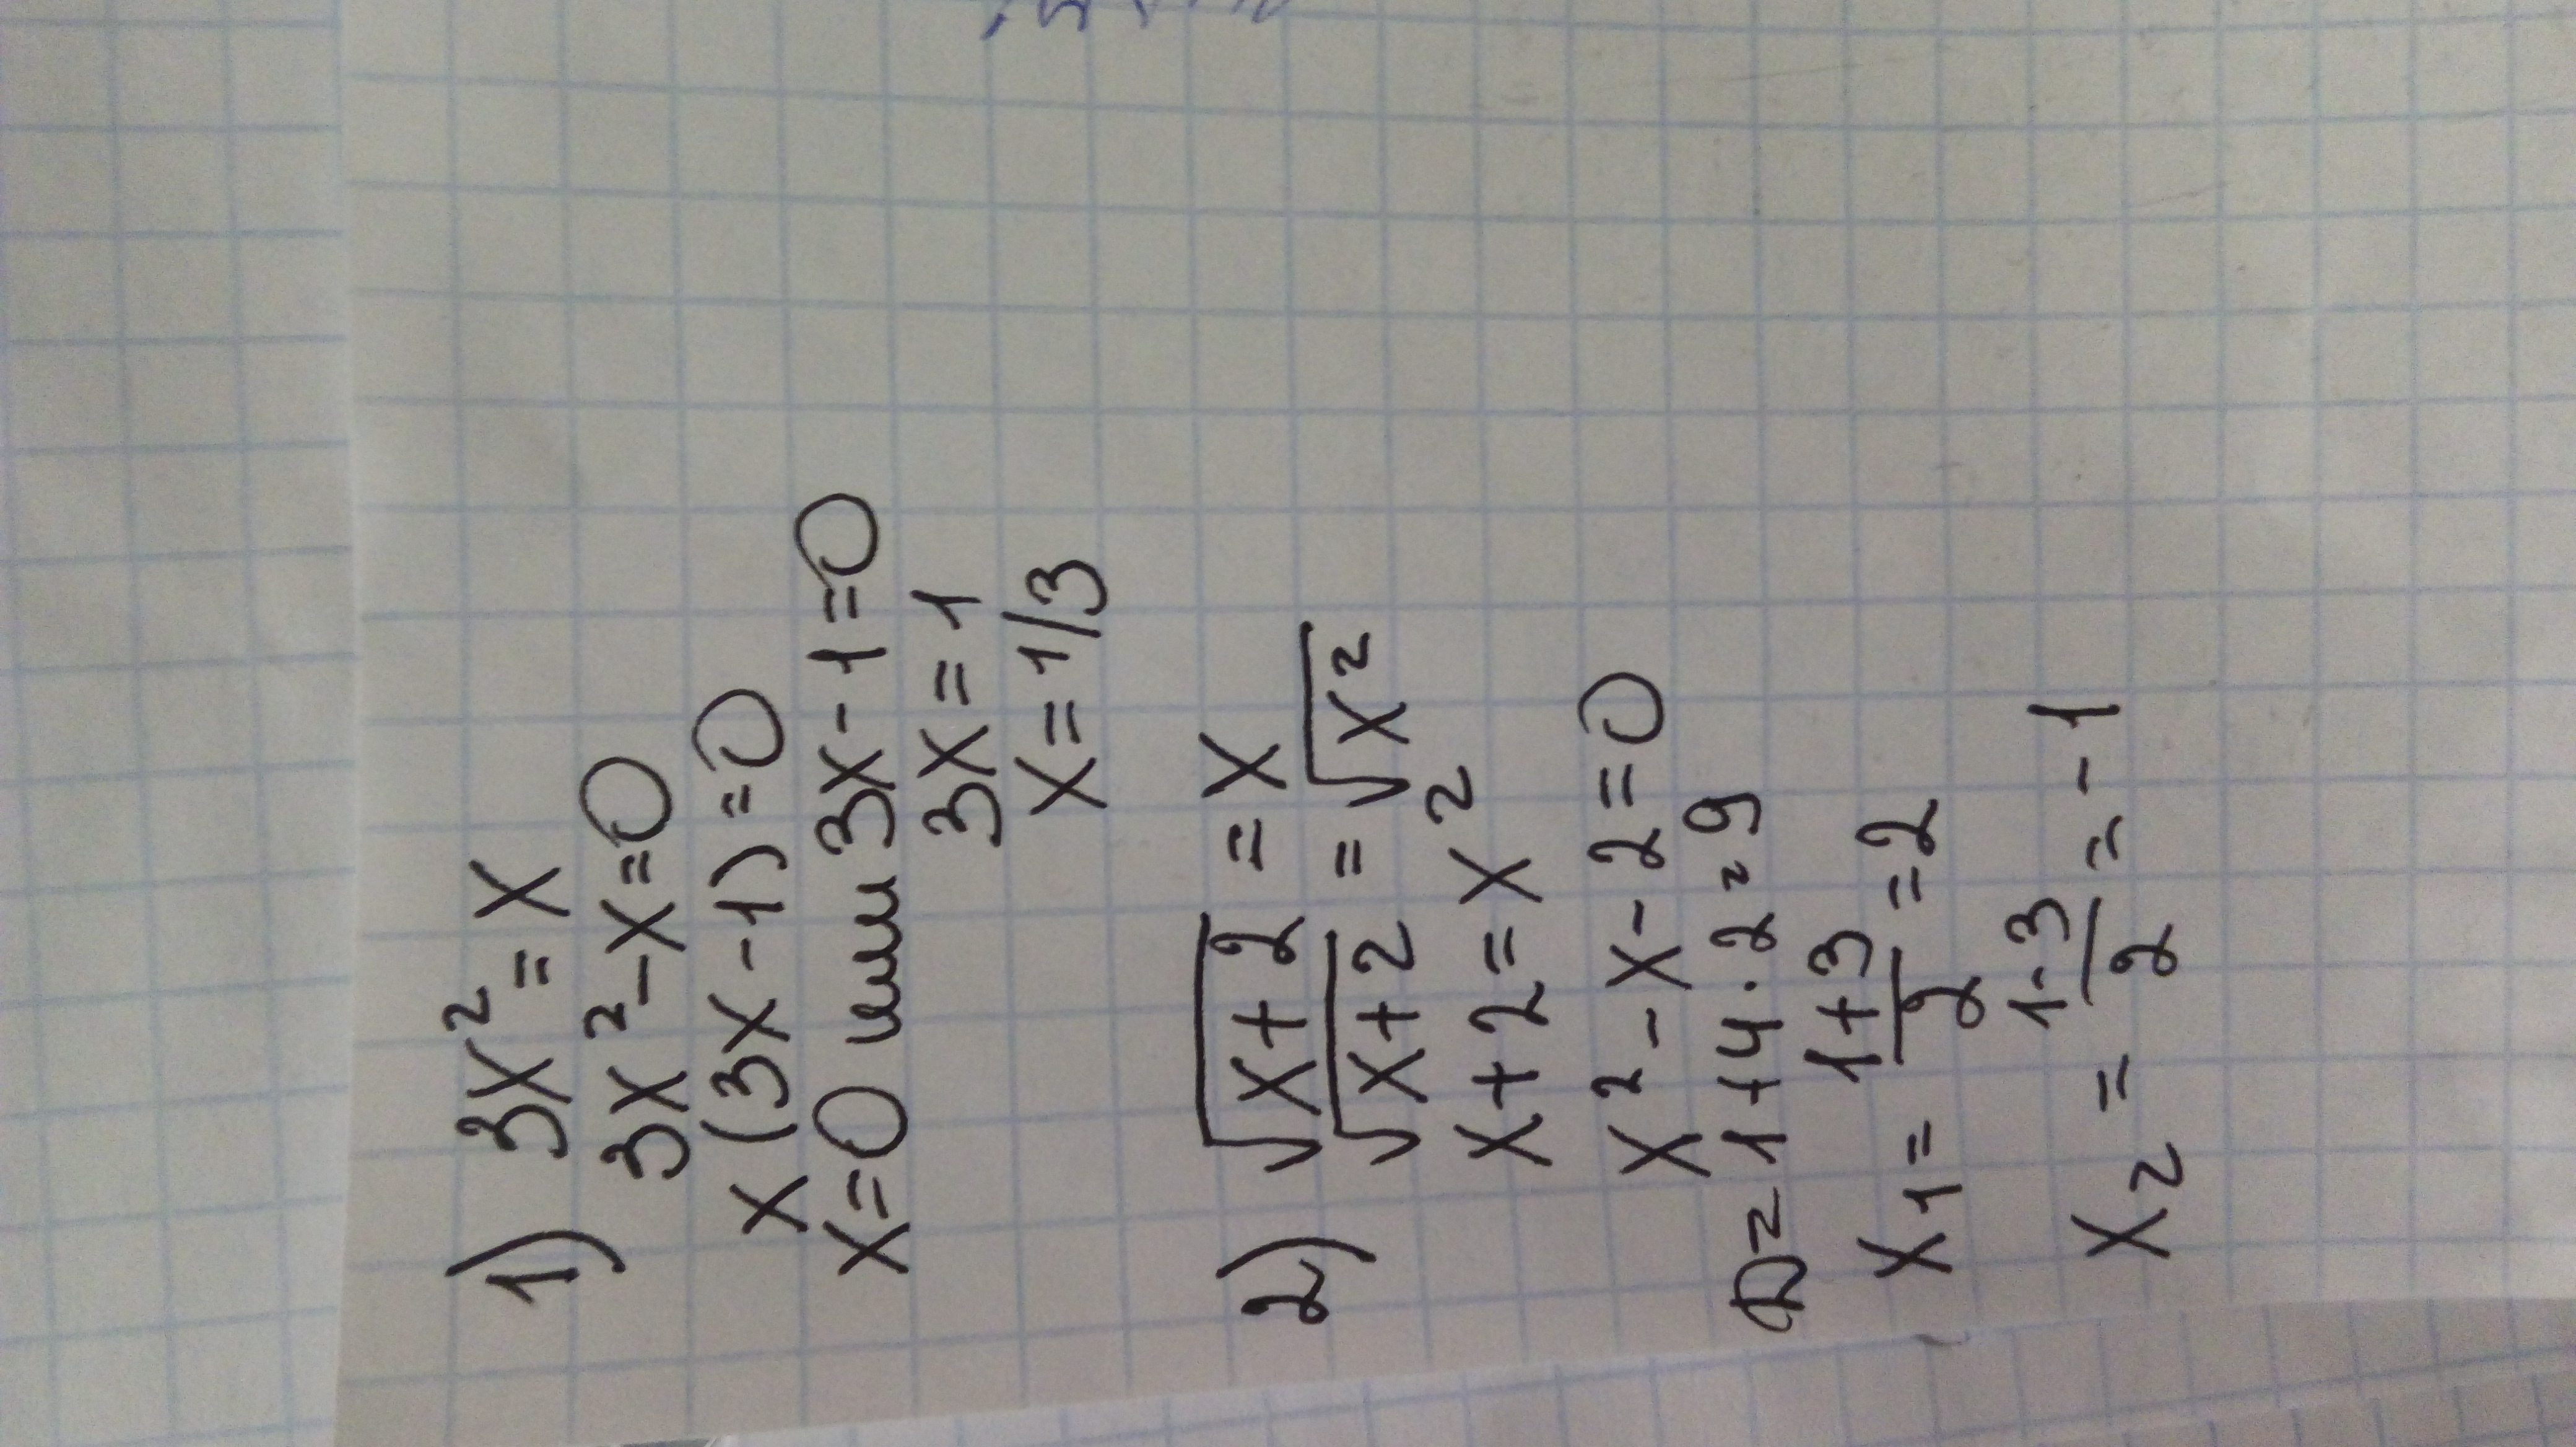 1) 3x² = x
3x² - x = 0
x(3x - 1) = 0
x = 0 или 3x - 1 = 0
3x = 1
x = 1/3
2) √(x + 2) = x
√(x + 2) = √(x²)
x + 2 = x²
x² - x - 2 = 0
D = 1 + 4 · 2 = 9
x₁ = (1 + 3)/2 = 2
x₂ = (1 - 3)/2 = -1